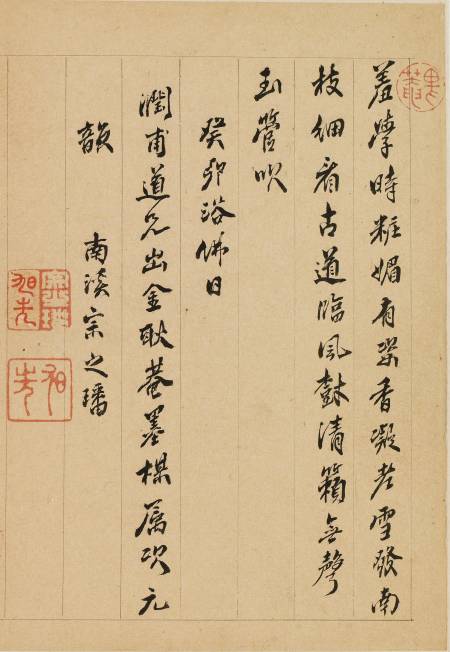 羞學時粧媚有姿香凝老雪發南
枝細看古道臨風清籟無聲
玉管吹
癸卯浴佛日
潤甫道兄出金耿菴墨楳屬次元
韻
南宗之璠